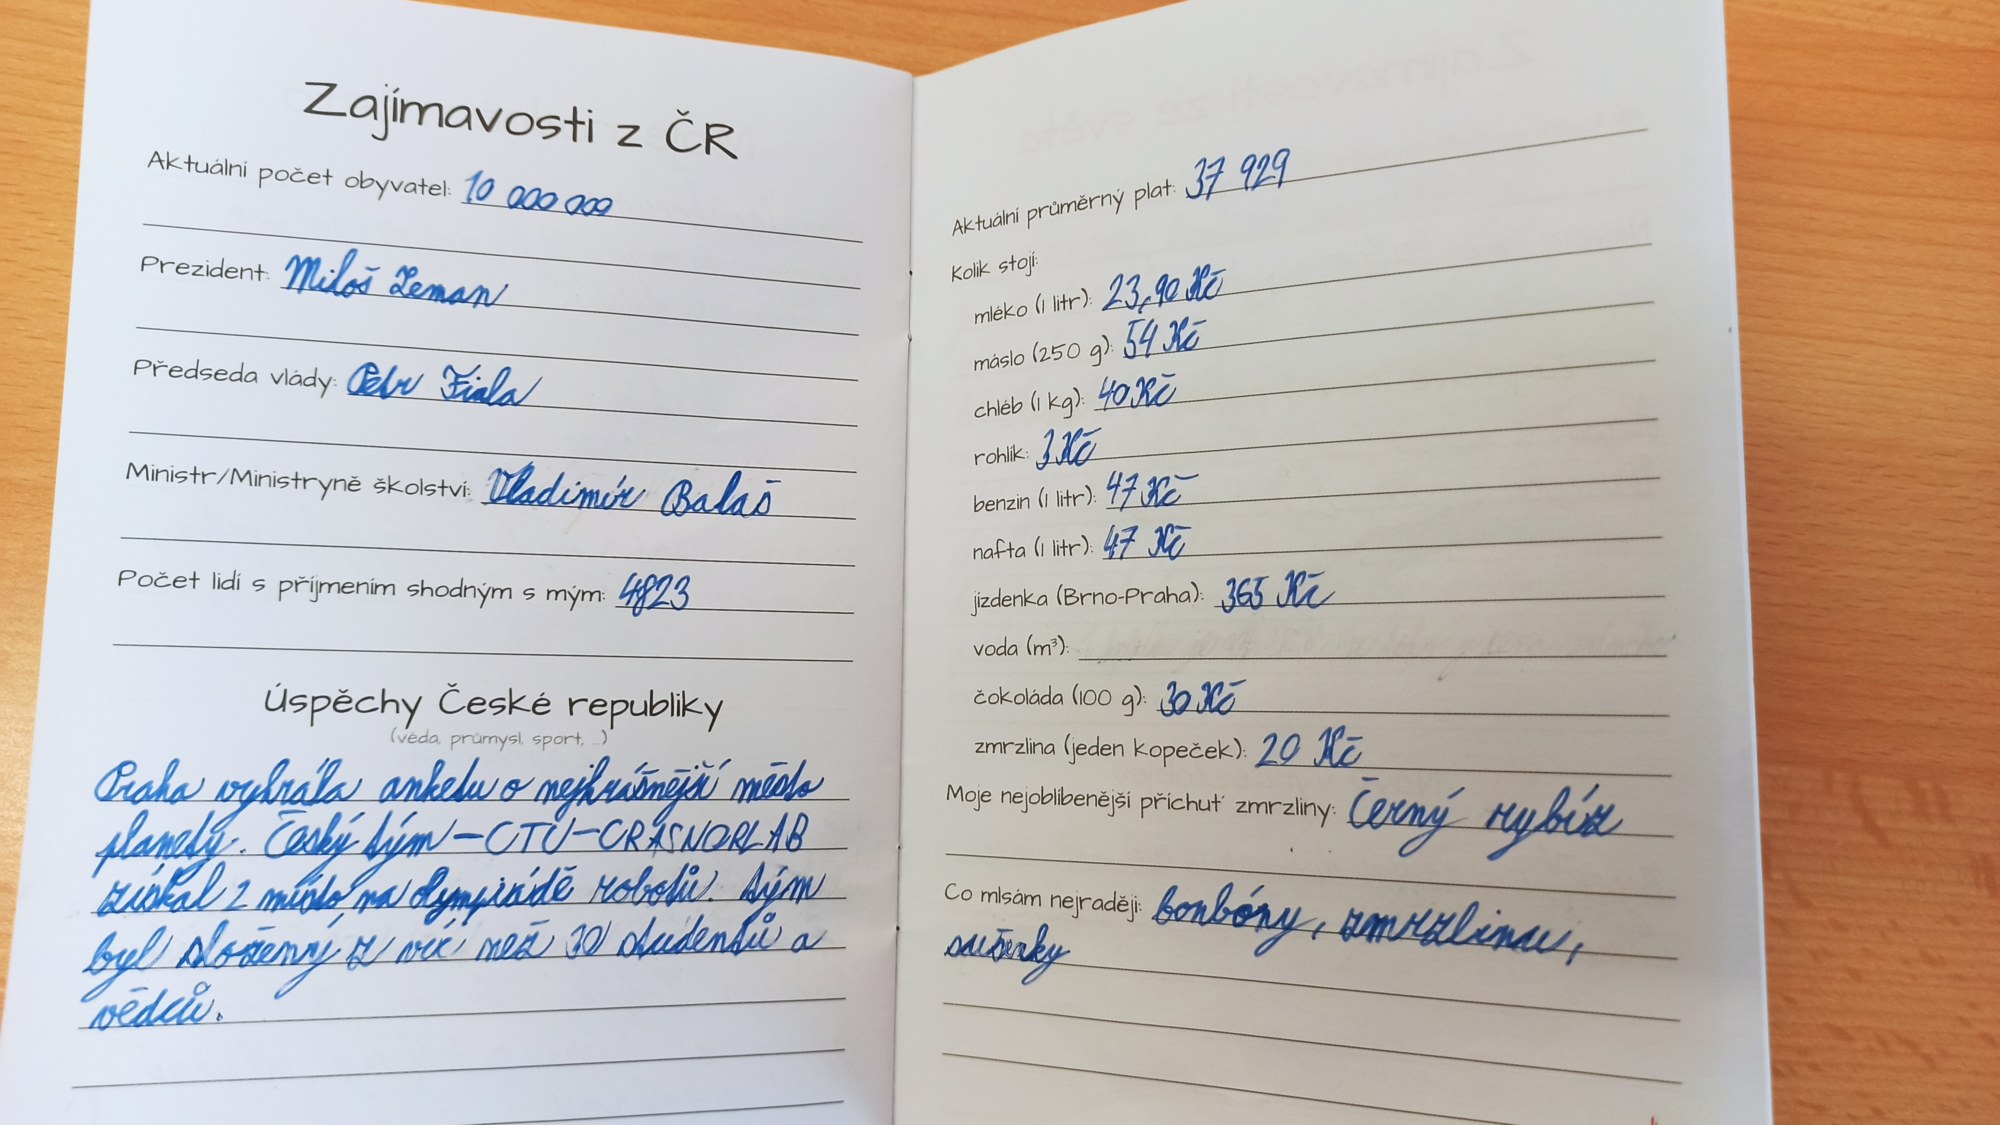 Zajímavosti z ČR
Aktuální počet obyvatel: 10 000 000
Prezident: Miloš Zeman
Předseda vlády: Petr Fiala
Ministr/Ministryně školství: Vladimír Balaš
Počet lidí s příjmením shodným s mým: 4823
Úspěchy České republiky
(věda, průmysl, sport, ...)
Praha vyhrála anketu o nejkrásnější město
planety. Český tým – CTU – CRASNORLAB
získal 2 místo na Olympiádě robotů. tým
byl složený z víc než 30 studentů a
vědců.
Aktuální průměrný plat: 37 929
Kolik stojí:
mléko (1 litr): 23,90 Kč
máslo (250 g): 54 Kč
chléb (1 kg): 40 Kč
rohlík: 3 Kč
benzin (1 litr): 47 Kč
nafta (1 litr): 47 Kč
jízdenka (Brno-Praha): 365 Kč
voda (m³):
čokoláda (100 g): 30 Kč
zmrzlina (jeden kopeček): 20 Kč
Moje nejoblíbenější příchuť zmrzliny: Černý rybíz
Co mlsám nejraději: bonbóny, zmrzlinu,
sušenky